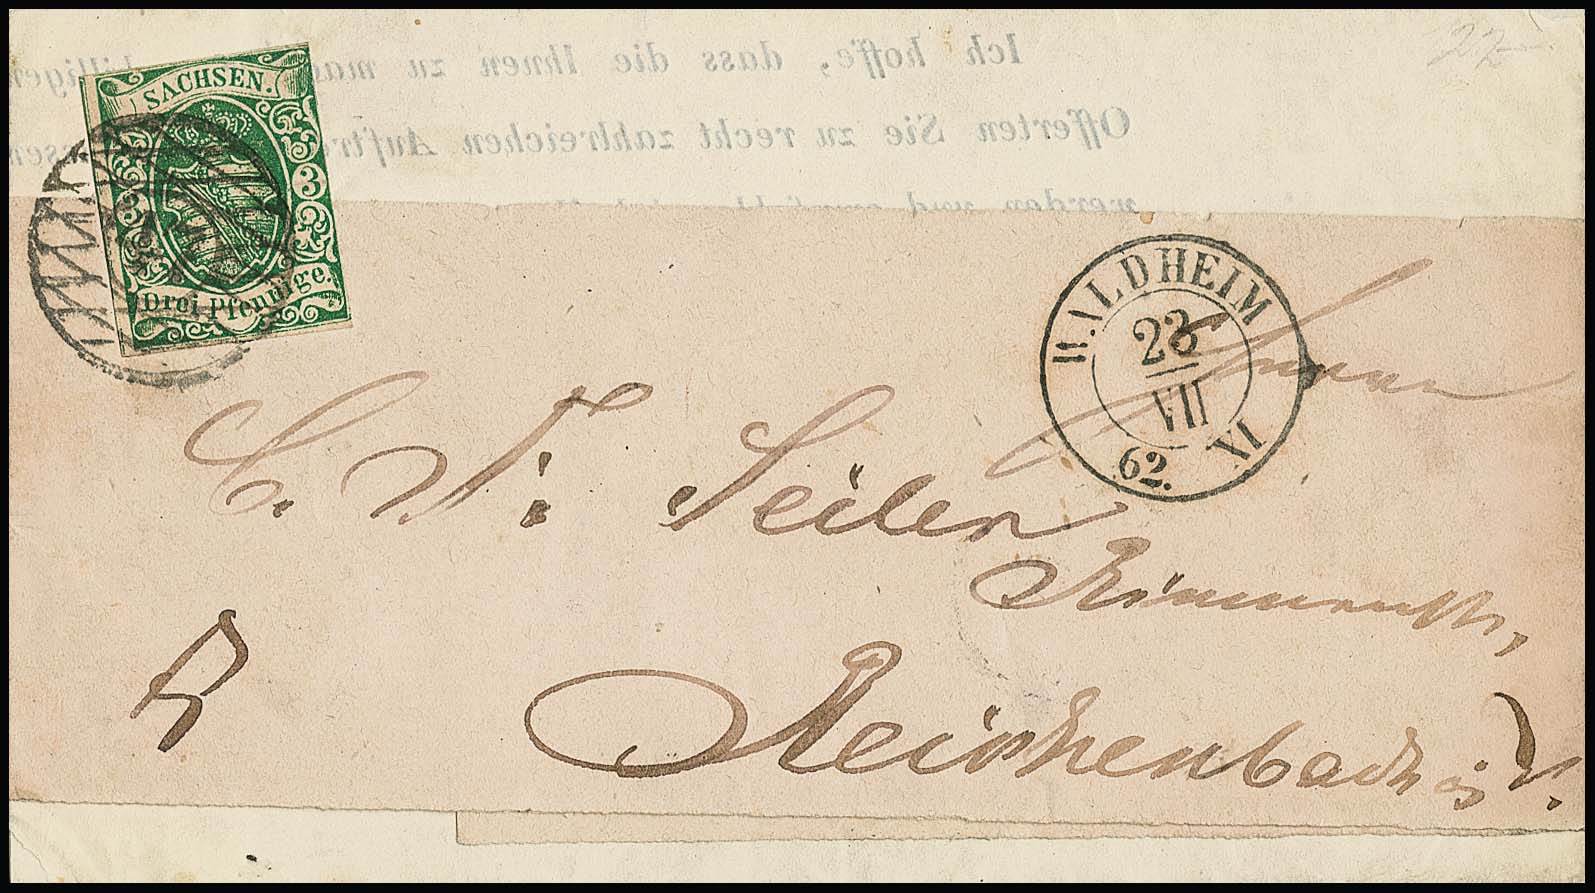 22
Ich hoffe, dass die Ihnen zu
Offerten Sie zu recht zahlreichen
werden und
SACHSEN.
3
Drei Pfennige.
WALDHEIM
23
VII
62. XI
C. F. Seiler
Reichenbach i/V.